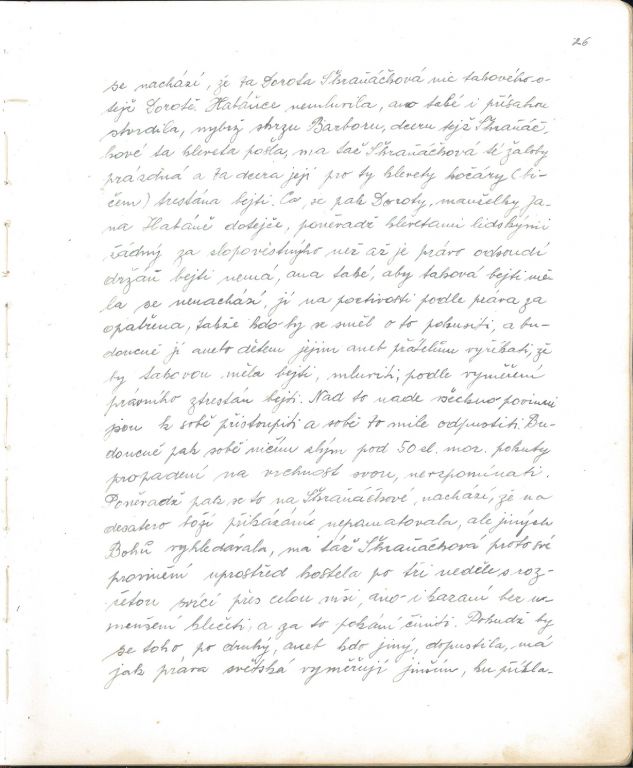 26
se nachází, že ta Dorota Skraňáčková nic takového o
též Dorotě Habánce nemluvila, ano také i přísahou
stvrdila, nybrž skrzu Barboru, dceru tejž Skraňáč-
kové ta kleveta pošla, má tač Skraňáčková té žaloby
prázdná a ta dcera její pro ty klevety kočáry (bi-
čem) trestána bejti. Co se pak Doroty, manželky Ja-
na Habáně dotejče, poněradž klevetami lidskými
žádný za zlopověstnýho než až je právo odsoudí
držán bejti nemá, ana také, aby taková bejti mě-
la se nenachází, jí na poctivosti podle práva za
opatřena, takže kdo by se směl o to pokusiti, a bu-
doucně jí aneto dětem jejím anet přátelům vyříkati, že
by takovou měla bejti, mluviti, podle vyměření
právního ztrestán bejti. Nad to nade všechno povinni
jsou k sobě přistoupiti a sobě to mile odpustiti. Bu-
doucně pak sobě ničím zlým pod 50 zl. mor. pokuty
propadení na vrchnost svou, nevzpomínati.
Poněradž pak se to na Skraňáčkové nachází, že na
desatero boží přikázání nepamatovala, ale jiných
Bohů vyhledávala, má táž Skraňáčková proto své
provinění uprostřed kostela po tři neděle s roz-
žetou svící přes celou mši, ano i kázaní bez u-
menšení klečeti a za to pokání činiti. Pokudž by
se toho po druhý, anet kdo jiný, dopustila, má
jak práva světská vyměřují jiným, ku příkla-